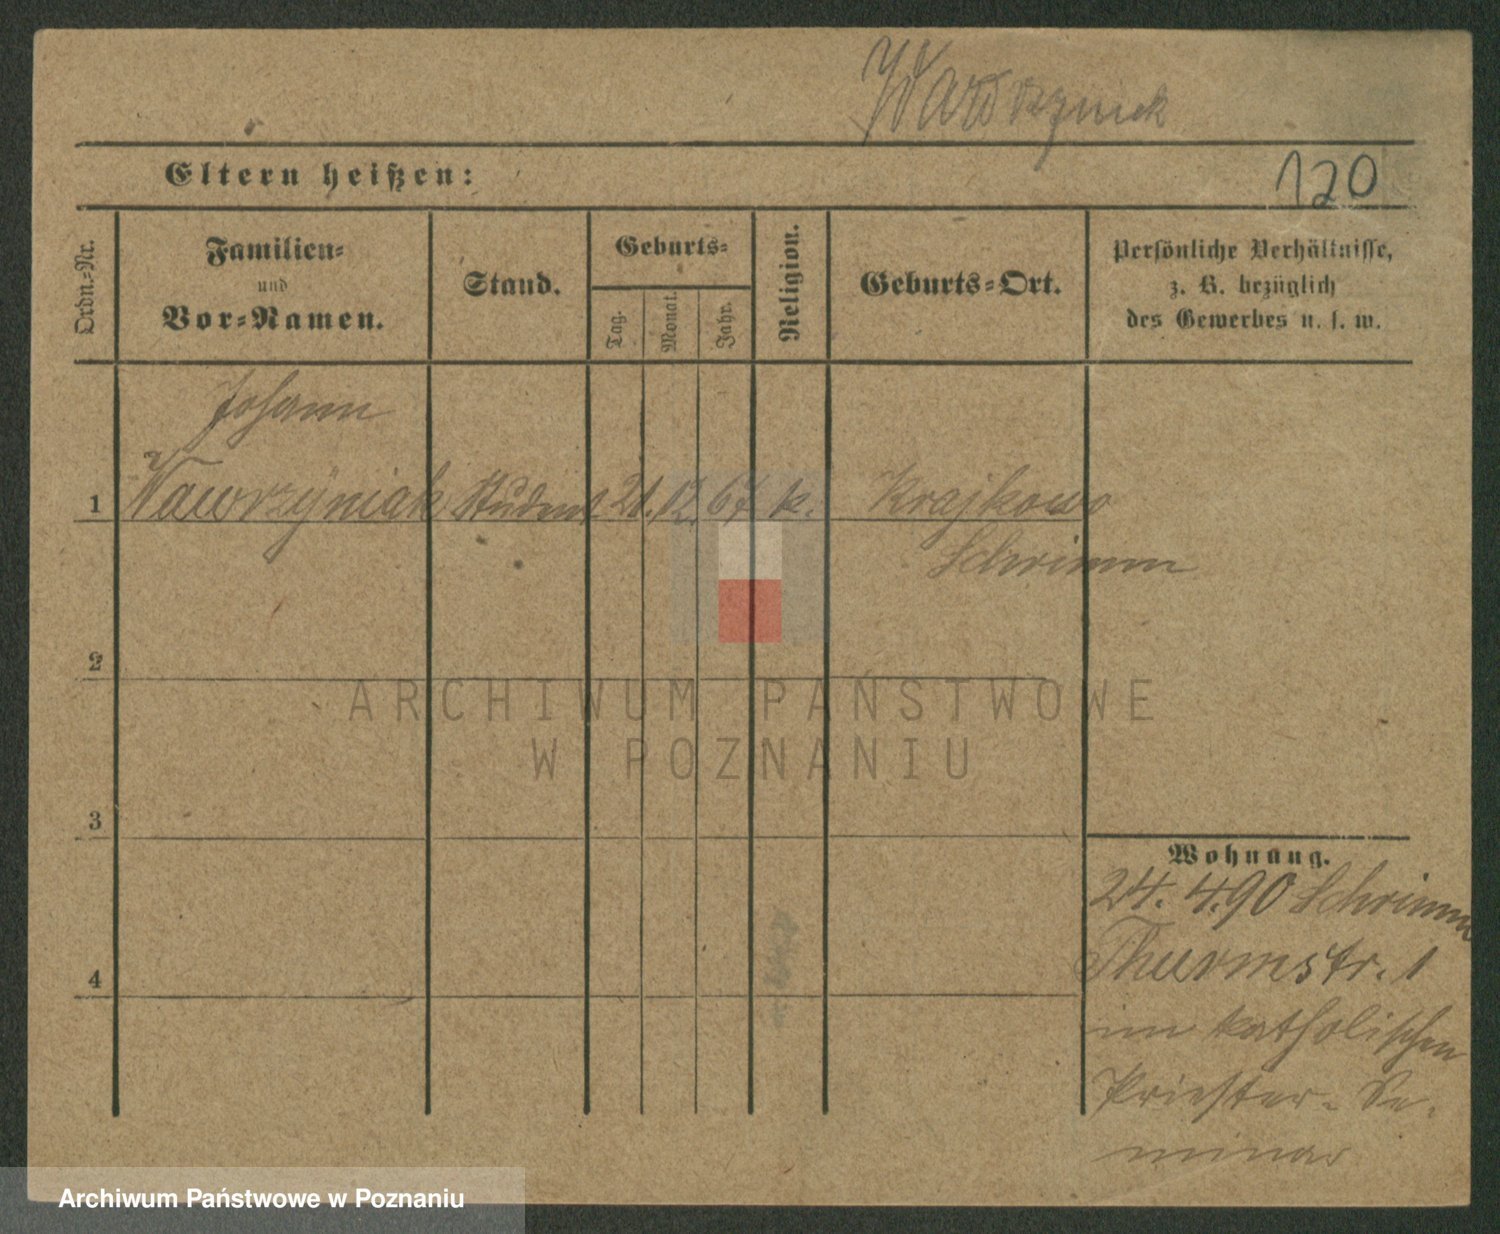 Wawrzyniak
Eltern heißen:
120
Ordn.-Nr.
Familien-
und
Vor-Namen.
Stand.
Geburts-
Tag.
Monat.
Jahr.
Religion.
Geburts-Ort.
Persönliche Verhältnisse,
z. B. bezüglich
des Gewerbes u. s. w.
Johann
1 Wawrzyniak Student 21. 12. 67 k. Krajkowo
Schrimm
2
3
4
Wohnung.
24. 4. 90 Schrimm
Thurmstr. 1
im katholischen
Priester-Se-
minar
ARCHIWUM PAŃSTWOWE
W POZNANIU
Archiwum Państwowe w Poznaniu